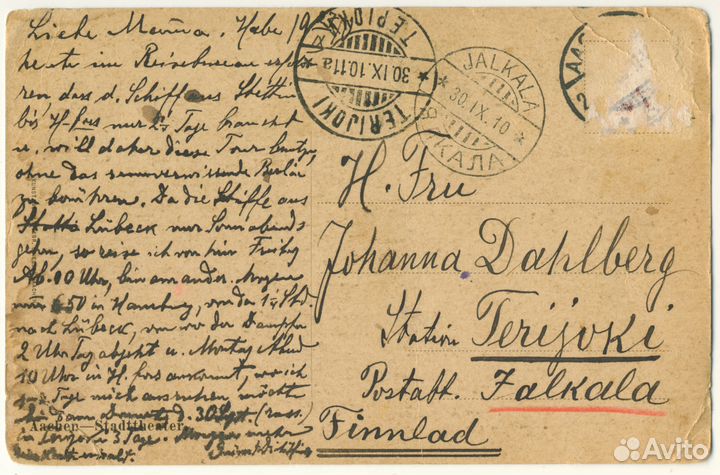 Liebe Mama. Habe
heute im Reisebureau erfah-
ren, dass d. Schiff aus Stettin
bis H-fors nur 1½ Tage braucht
u. will daher diese Tour
ohne das Berlin
zu berühren. Da die Schiffe aus
Lübeck nur Sonnabends
gehen, so reise ich von hier Freitag
Ab. 10 Uhr, bin am ander. Morgen
6.50 in Hamburg, von da 1½ Std.
nach Lübeck, von wo der Dampfer
2 Uhr Tag abgeht u. Montag Abend
10 Uhr in H.fors ankommt, wo ich
Tage mich ausruhen möchte
d. 30 Sept. (russ.)
in Terijoki 3 Tage. Morgen mehr
Aachen - Stadttheater
TERIJOKI
30.IX.10.11a
ТЕРІОКИ
JALKALA
30.IX.10
КАЛА
2
H. Fru
Johanna Dahlberg
Station Terijoki
Postatt. Jalkala
Finnlad
Avito